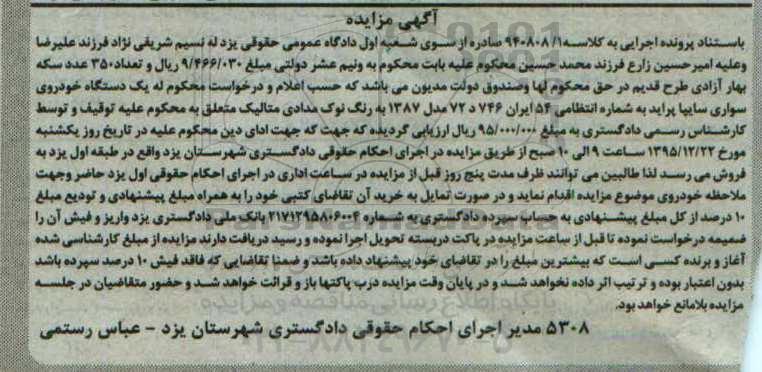 آگهی مزایده
باستناد پرونده اجرایی به کلاسه۹۴۰۸۰۸/۱ صادره از سوی شعبه اول دادگاه عمومی حقوقی یزد له نسیم شریفی نژاد فرزند علیرضا
وعلیه امیرحسین زارع فرزند محمد حسین محکوم علیه بابت محکوم به ونیم عشر دولتی مبلغ ۹/۴۶۶/۰۳۰ ریال و تعداد۳۵۰ عدد سکه
بهار آزادی طرح قدیم در حق محکوم لها وصندوق دولت مدیون می باشد که حسب اعلام و درخواست محکوم له یک دستگاه خودروی
سواری سایپا پراید به شماره انتظامی ۵۴ ایران ۷۴۶ د ۷۲ مدل ۱۳۸۷ به رنگ نوک مدادی متالیک متعلق به محکوم علیه توقیف و توسط
کارشناس رسمی دادگستری به مبلغ ۹۵/۰۰۰/۰۰۰ ریال ارزیابی گردیده که جهت گه جهت ادای دین محکوم علیه در تاریخ روز یکشنبه
مورخ ۱۳۹۵/۱۲/۲۲ ساعت ۹ الی ۱۰ صبح از طریق مزایده در اجرای احکام حقوقی دادگستری شهرستان یزد واقع در طبقه اول یزد به
فروش می رسد لذا طالبین می توانند ظرف مدت پنج روز قبل از مزایده در ساعت اداری در اجرای احکام حقوقی اول یزد حاضر وجهت
ملاحظه خودروی موضوع مزایده اقدام نماید و در صورت تمایل به خرید آن تقاضای کتبی خود را به همراه مبلغ پیشنهادی و تودیع مبلغ
۱۰ درصد از کل مبلغ پیشنهادی به حساب سپرده دادگستری به شماره ۲۱۷۱۲۹۵۸۰۶۰۰۴ بانک ملی دادگستری یزد واریز و فیش آن را
ضمیمه درخواست نموده تا قبل از ساعت مزایده در پاکت دربسته تحویل اجرا نموده و رسید دریافت دارند مزایده از مبلغ کارشناسی شده
آغاز و برنده کسی است که بیشترین مبلغ را در تقاضای خود پیشنهاد داده باشد و ضمنا تقاضایی که فاقد فیش ۱۰ درصد سپرده باشد
بدون اعتبار بوده و ترتیب اثر داده نخواهد شد و در پایان وقت مزایده درب پاکتها باز و قرائت خواهد شد و حضور متقاضیان در جلسه
مزایده بلامانع خواهد بود.
۵۳۰۸ مدیر اجرای احکام حقوقی دادگستری شهرستان یزد - عباس رستمی